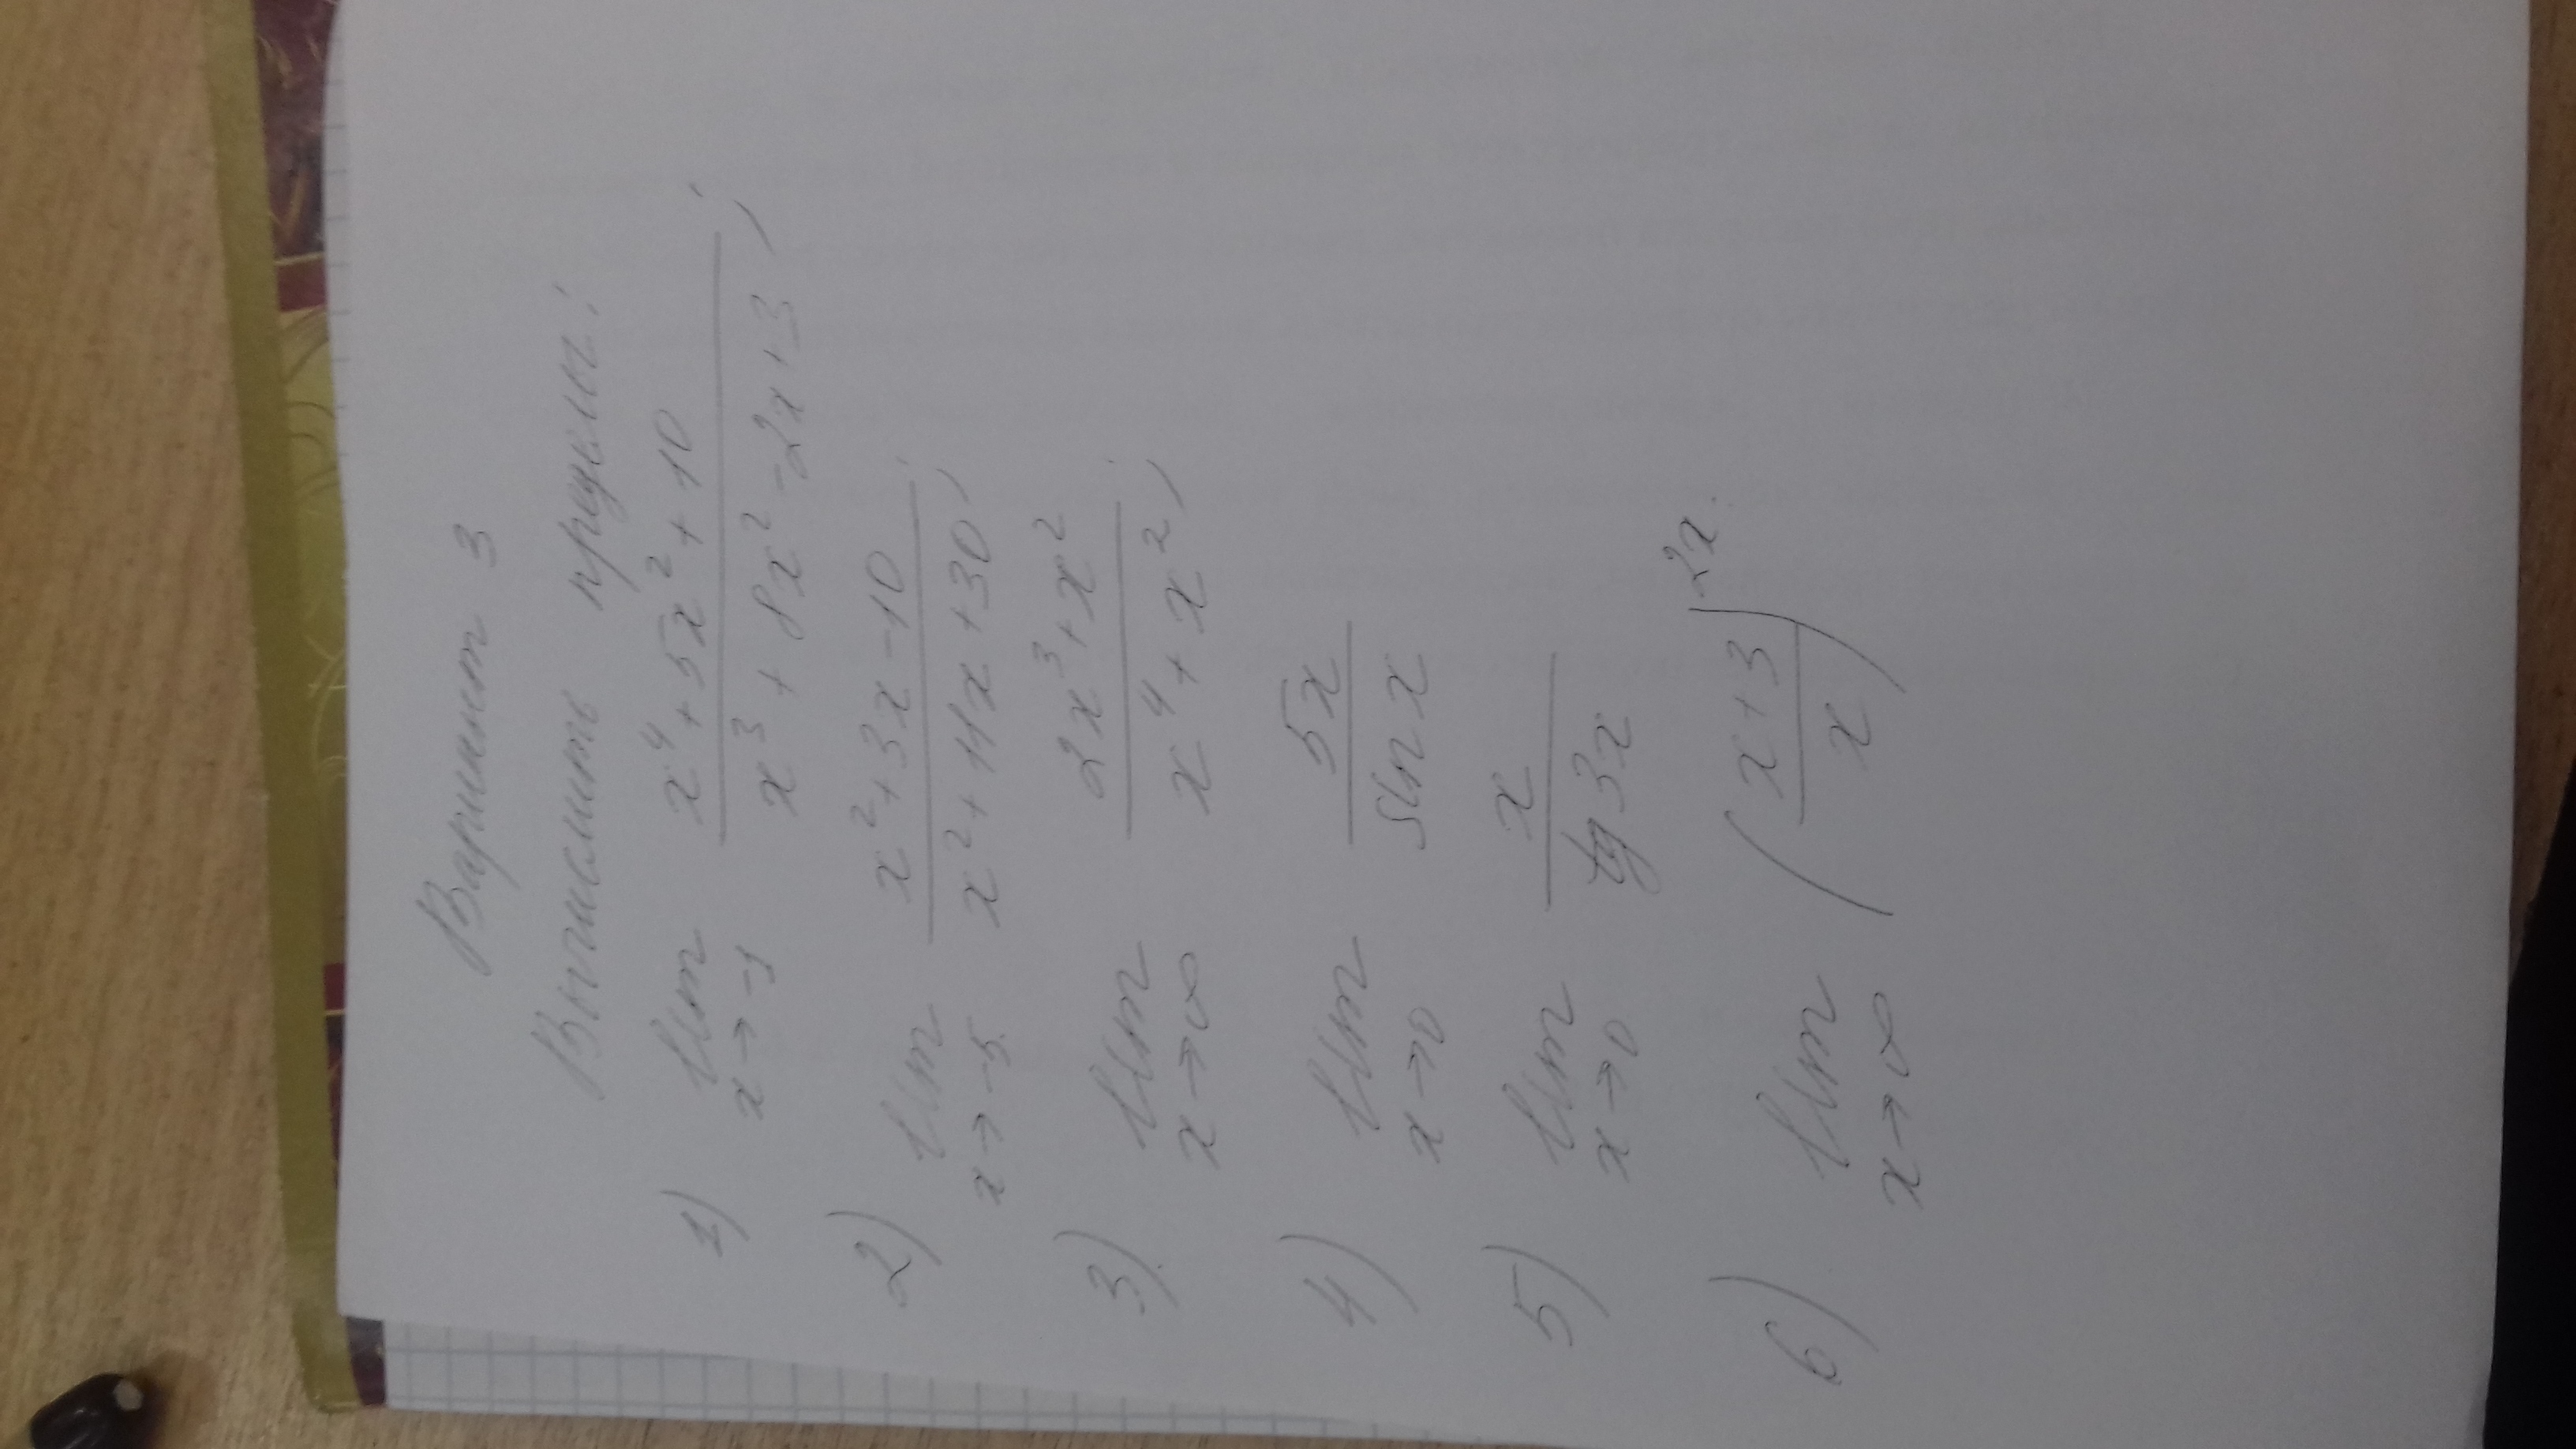 Вариант 3
Вычислить пределы:
1) lim x→-1 (x⁴+5x²+10)/(x³+8x²-2x+3);
2) lim x→-5 (x²+3x-10)/(x²+11x+30);
3) lim x→∞ (2x³+x²)/(x⁴+x²);
4) lim x→0 5x/sin x
5) lim x→0 x/tg3x
6) lim x→∞ ((x+3)/x)²ˣ.